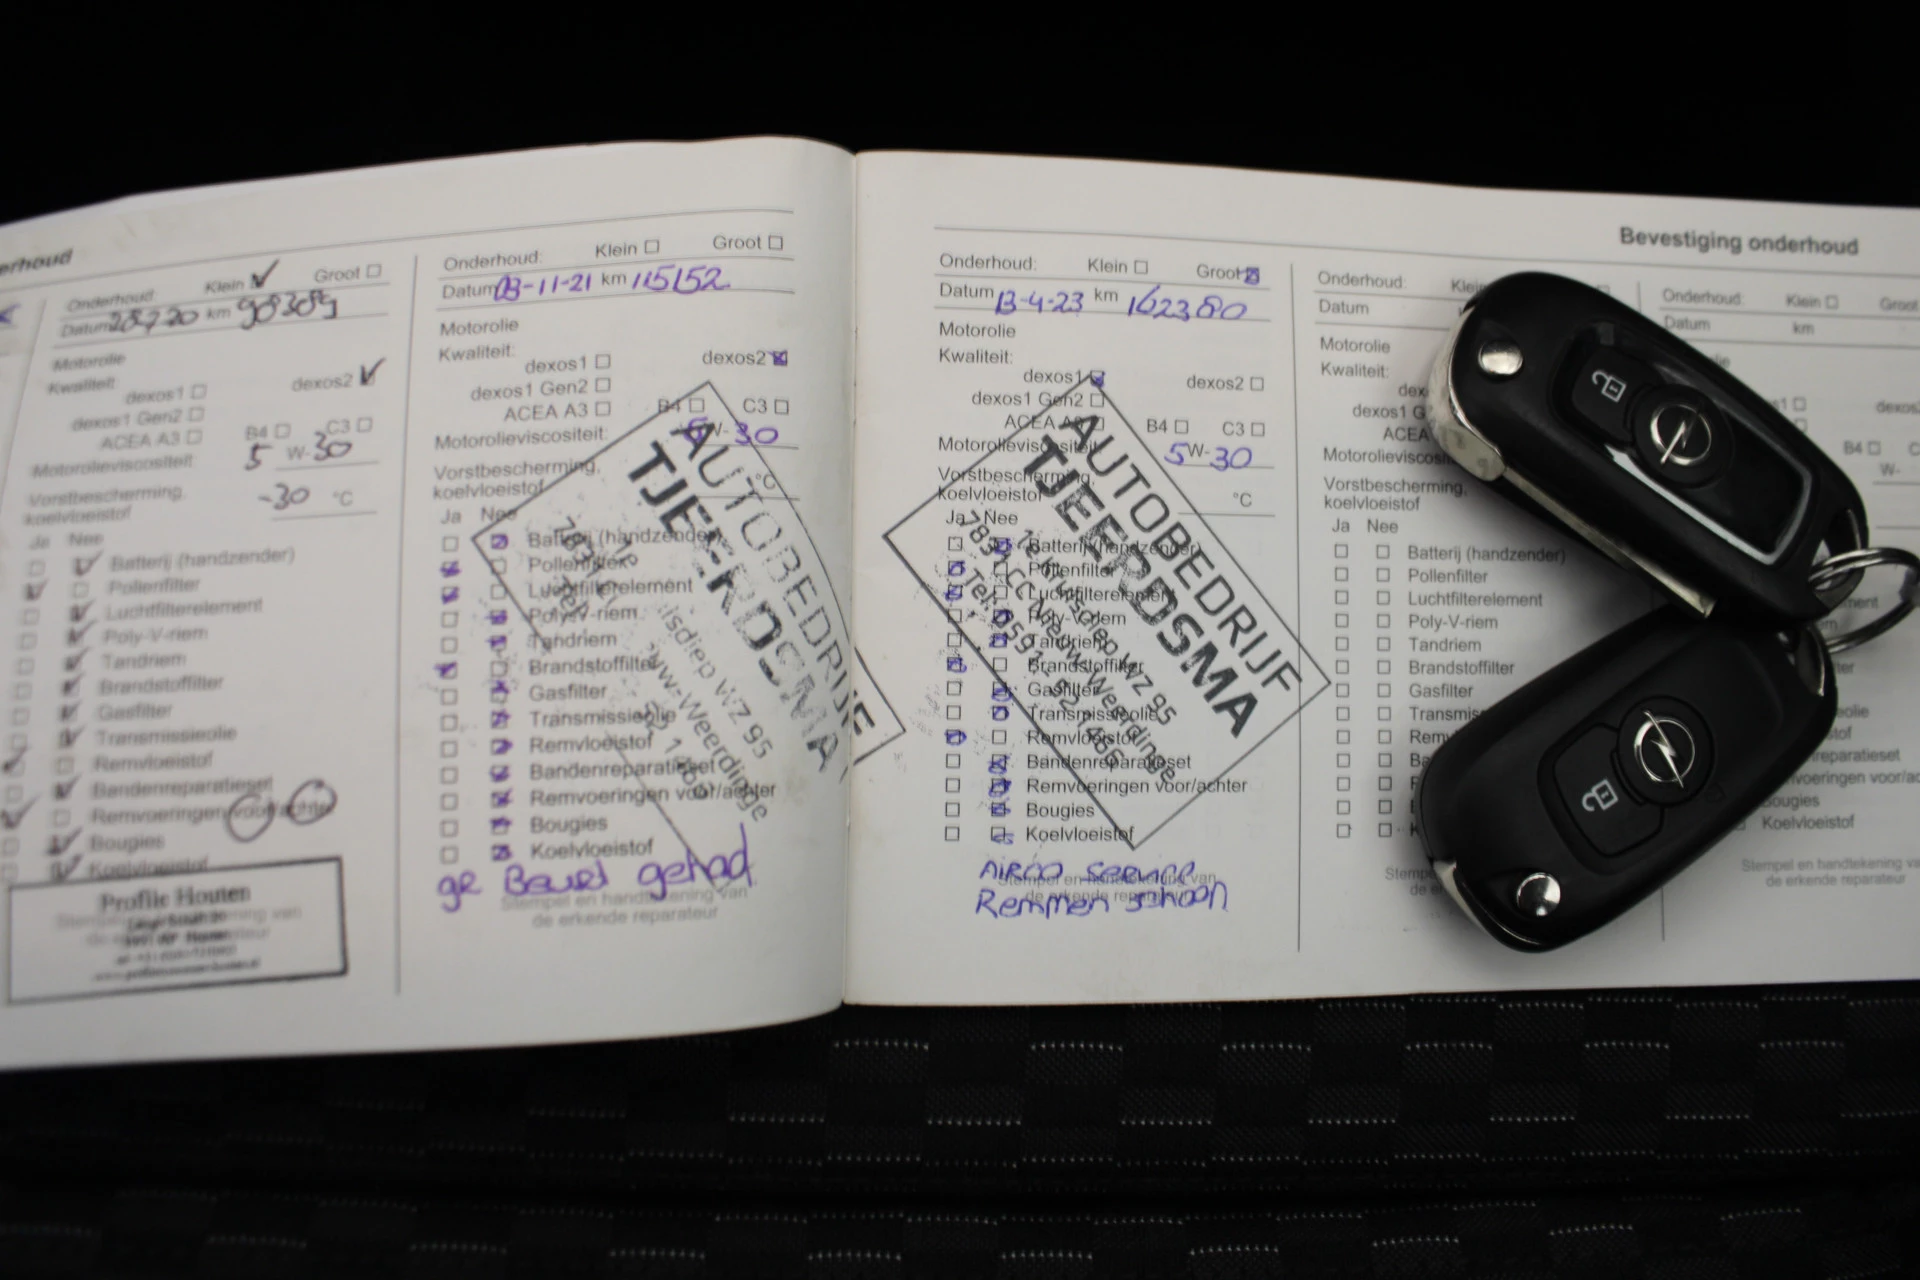 Bevestiging onderhoud
Onderhoud: Klein Groot
Datum 28720 km 98389
Motorolie
Kwaliteit: dexos1 dexos2
dexos1 Gen2
ACEA A3 B4 C3
Motorolieviscositeit 5 W-30
Vorstbescherming, -30 °C
koelvloeistof
Ja Nee
Batterij (handzender)
Pollenfilter
Luchtfilterelement
Poly-V-riem
Tandriem
Brandstoffilter
Gasfilter
Transmissieolie
Remvloeistof
Bandenreparatieset
Remvoeringen voor/achter
Bougies
Koelvloeistof
Profile Houten
Onderhoud: Klein Groot
Datum 03-11-21 km 115152
Motorolie
Kwaliteit: dexos1 dexos2
dexos1 Gen2
ACEA A3 B4 C3
Motorolieviscositeit: 5 W-30
Vorstbescherming, °C
koelvloeistof
Ja Nee
Batterij (handzender)
Pollenfilter
Luchtfilterelement
Poly-V-riem
Tandriem
Brandstoffilter
Gasfilter
Transmissieolie
Remvloeistof
Bandenreparatieset
Remvoeringen voor/achter
Bougies
Koelvloeistof
gehad
Stempel en handtekening van
de erkende reparateur
AUTOBEDRIJF
TJEERDSMA
WZ 95
Onderhoud: Klein Groot
Datum 13-4-23 km 162380
Motorolie
Kwaliteit:
dexos1 dexos2
dexos1 Gen2
ACEA A3 B4 C3
Motorolieviscositeit 5W-30
Vorstbescherming,
koelvloeistof °C
Ja Nee
Batterij (handzender)
Pollenfilter
Luchtfilterelement
Poly-V-riem
Tandriem
Brandstoffilter
Gasfilter
Transmissieolie
Remvloeistof
Bandenreparatieset
Remvoeringen voor/achter
Bougies
Koelvloeistof
Airco service
Remmen schoon
Stempel en handtekening van
de erkende reparateur
AUTOBEDRIJF
TJEERDSMA
WZ 95
7831 CC Nieuw-Weerdinge
Tel. 0591-521466
Onderhoud:
Datum
Motorolie
Kwaliteit:
Motorolieviscosit
Vorstbescherming,
koelvloeistof
Ja Nee
Batterij (handzender)
Pollenfilter
Luchtfilterelement
Poly-V-riem
Tandriem
Brandstoffilter
Gasfilter
Transmis
Onderhoud: Klein Groot
Datum km
B4
W-
Koelvloeistof
Stempel en handtekening va
de erkende reparateur